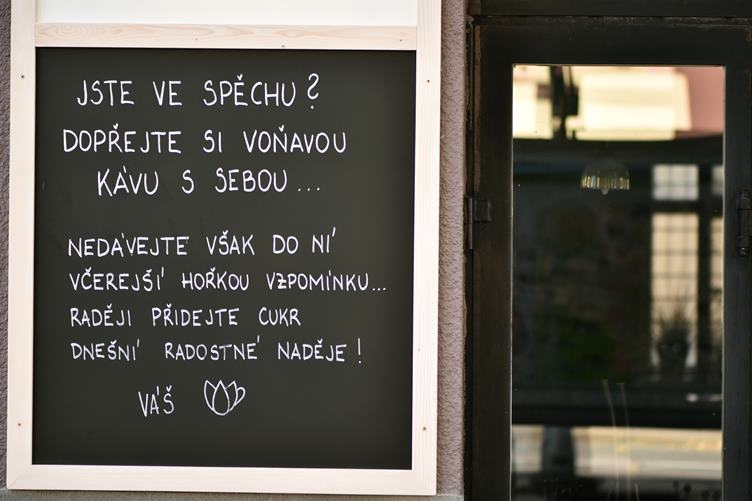 JSTE VE SPĚCHU?
DOPŘEJTE SI VOŇAVOU
KÁVU S SEBOU...
NEDÁVEJTE VŠAK DO NÍ
VČEREJŠÍ HOŘKOU VZPOMÍNKU...
RADĚJI PŘIDEJTE CUKR
DNEŠNÍ RADOSTNÉ NADĚJE!
VÁŠ